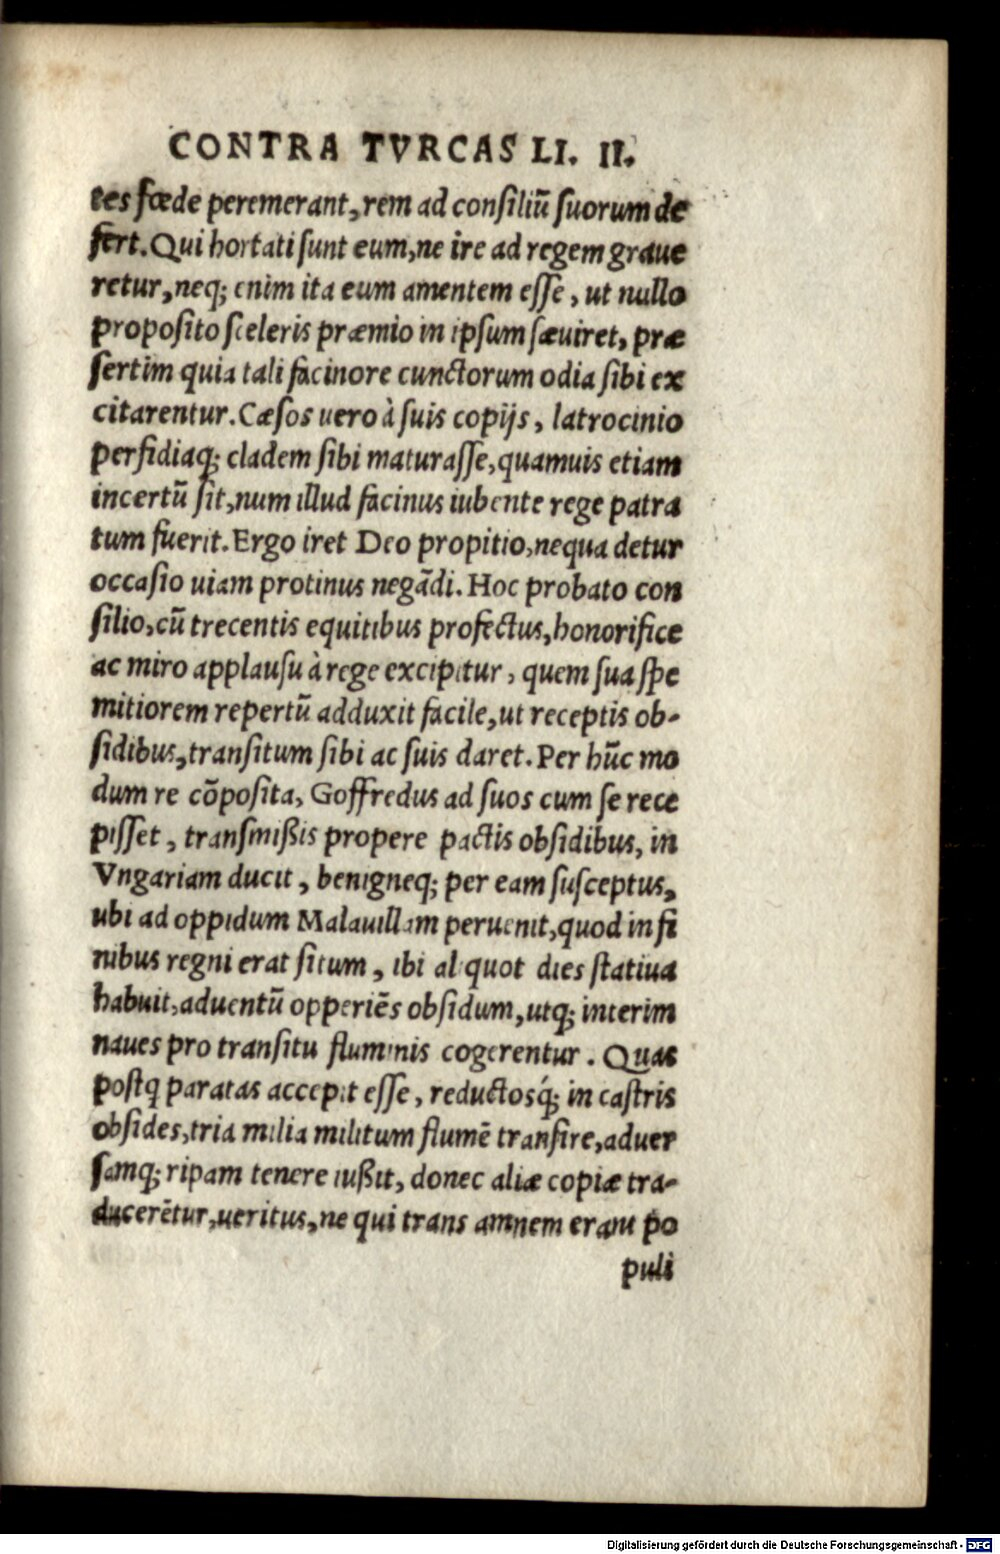 CONTRA TVRCAS LI. II.
tes fœde peremerant, rem ad consiliũ suorum de
fert. Qui hortati sunt eum, ne ire ad regem graue
retur, neq; enim ita eum amentem esse, ut nullo
proposito sceleris præmio in ipsum sæuiret, præ
sertim quia tali facinore cunctorum odia sibi ex
citarentur. Cæsos uero à suis copijs, latrocinio
perfidiaq; cladem sibi maturasse, quamuis etiam
incertũ sit, num illud facinus iubente rege patra
tum fuerit. Ergo iret Deo propitio, nequa detur
occasio uiam protinus negãdi. Hoc probato con
silio, cũ trecentis equitibus profectus, honorifice
ac miro applausu à rege excipitur, quem sua spe
mitiorem repertũ adduxit facile, ut receptis ob-
sidibus, transitum sibi ac suis daret. Per hũc mo
dum re cõposita, Goffredus ad suos cum se rece
pisset, transmißis propere pactis obsidibus, in
Vngariam ducit, benigneq; per eam susceptus,
ubi ad oppidum Malauillam peruenit, quod in fi
nibus regni erat situm, ibi aliquot dies statiua
habuit, aduentũ opperiẽs obsidum, utq; interim
naues pro transitu fluminis cogerentur. Quas
postq paratas accepit esse, reductosq́; in castris
obsides, tria milia militum flumẽ transire, aduer
samq; ripam tenere iußit, donec aliæ copiæ tra-
ducerẽtur, ueritus, ne qui trans amnem erant po
puli
Digitalisierung gefördert durch die Deutsche Forschungsgemeinschaft - DFG